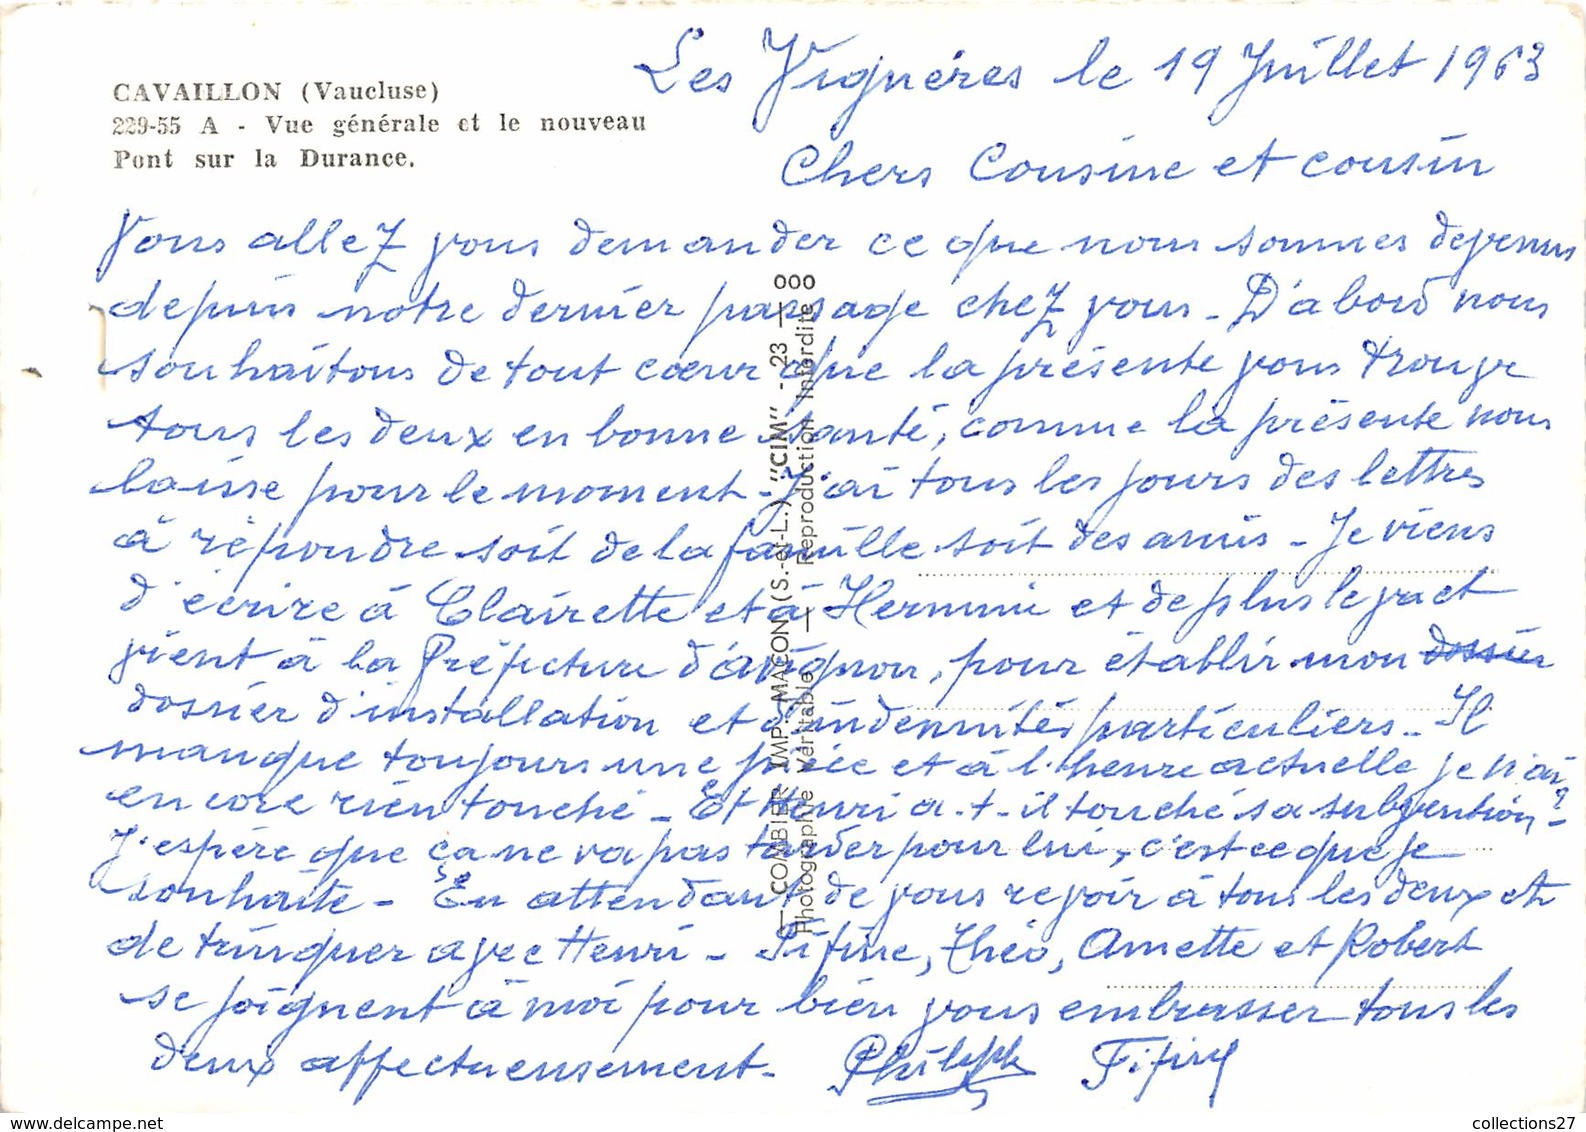 CAVAILLON (Vaucluse)
229-55 A - Vue générale et le nouveau
Pont sur la Durance.
Les Vignères le 19 Juillet 1963
Chers Cousine et cousin
Vous allez vous demander ce que nous sommes devenus
depuis notre dernier passage chez vous - D'abord nous
souhaitons de tout cœur que la présente vous trouve
tous les deux en bonne santé, comme la présente nous
laisse pour le moment - J'ai tous les jours des lettres
à répondre soit de la famille soit des amis - Je viens
d'écrire à Clairette et à Hermine et de plus le va et
vient à la Préfecture d'avignon, pour établir mon dossier
dossier d'installation et d'indemnités particuliers - Il
manque toujours une pièce et à l'heure actuelle je n'ai
encore rien touché - Et Henri a-t-il touché sa subvention ? -
J'espère que ça ne va pas tarder pour lui, c'est ce que je
souhaite - En attendant de vous revoir à tous les deux et
de trinquer avec Henri - Fifine, Théo, Amette et Robert
se joignent à moi pour bien vous embrasser tous les
deux affectueusement -
Fifine
— COMBIER IMP. MACON (S.-et-L.) "CIM" - 23 — 000
Photographie Véritable — Reproduction Interdite
collections27
www.delcampe.net